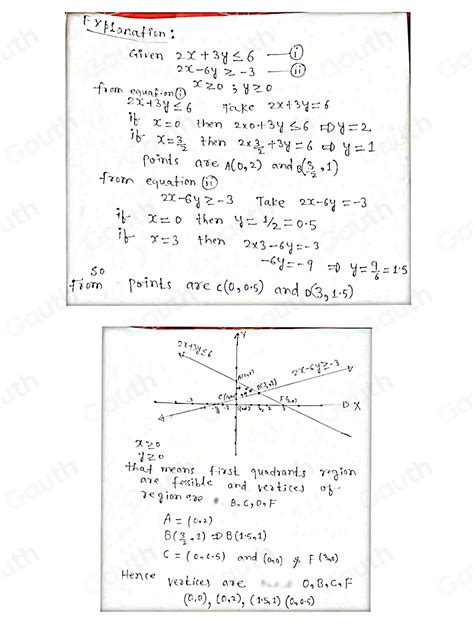 Explanation:
Given 2x+3y≤6 —(i)
2x-6y≥-3 —(ii)
x≥0 ; y≥0
from equation(i)
2x+3y≤6 Take 2x+3y=6
if x=0 then 2x0+3y≤6 ⇒ y=2
if x=3/2 then 2x3/2+3y=6 ⇒ y=1
points are A(0,2) and B(3/2,1)
from equation (ii)
2x-6y≥-3 Take 2x-6y=-3
if x=0 then y=1/2=0.5
if x=3 then 2x3-6y=-3
-6y=-9 ⇒ y=9/6=1.5
So
from points are C(0,0.5) and D(3,1.5)
Y
2x+3y≤6
2x-6y≥-3
A(0,2)
F(3,0)
X
x≥0
y≥0
that means first quadrants region
are fesible and vertices of
region are B,C,O,F
A=(0,2)
B(3/2,1) ⇒ B(1.5,1)
C=(0,0.5) and (0,0) & F(3,0)
Hence vertices are O,B,C,F
(0,0), (0,2), (1.5,1) (0,0.5)
Gauth